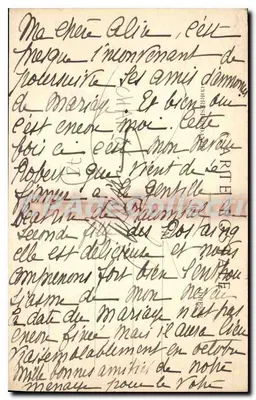 Ma chère Alice, c'est
presque l'inconvenant de
poursuivre ses amis d'annonces
de mariage. Et bien oui
c'est encore moi. Cette
fois ci c'est mon neveu
Robert qui vient de se
à la gentille
Béatrix de
second des
elle est délicieuse et nous
comprenons fort bien l'enthou
siasme de mon neveu
la date du mariage n'est pas
encore fixée mais il aura lieu
vraisemblablement en octobre
Mille bonnes amitiés de notre
ménage pour le vôtre